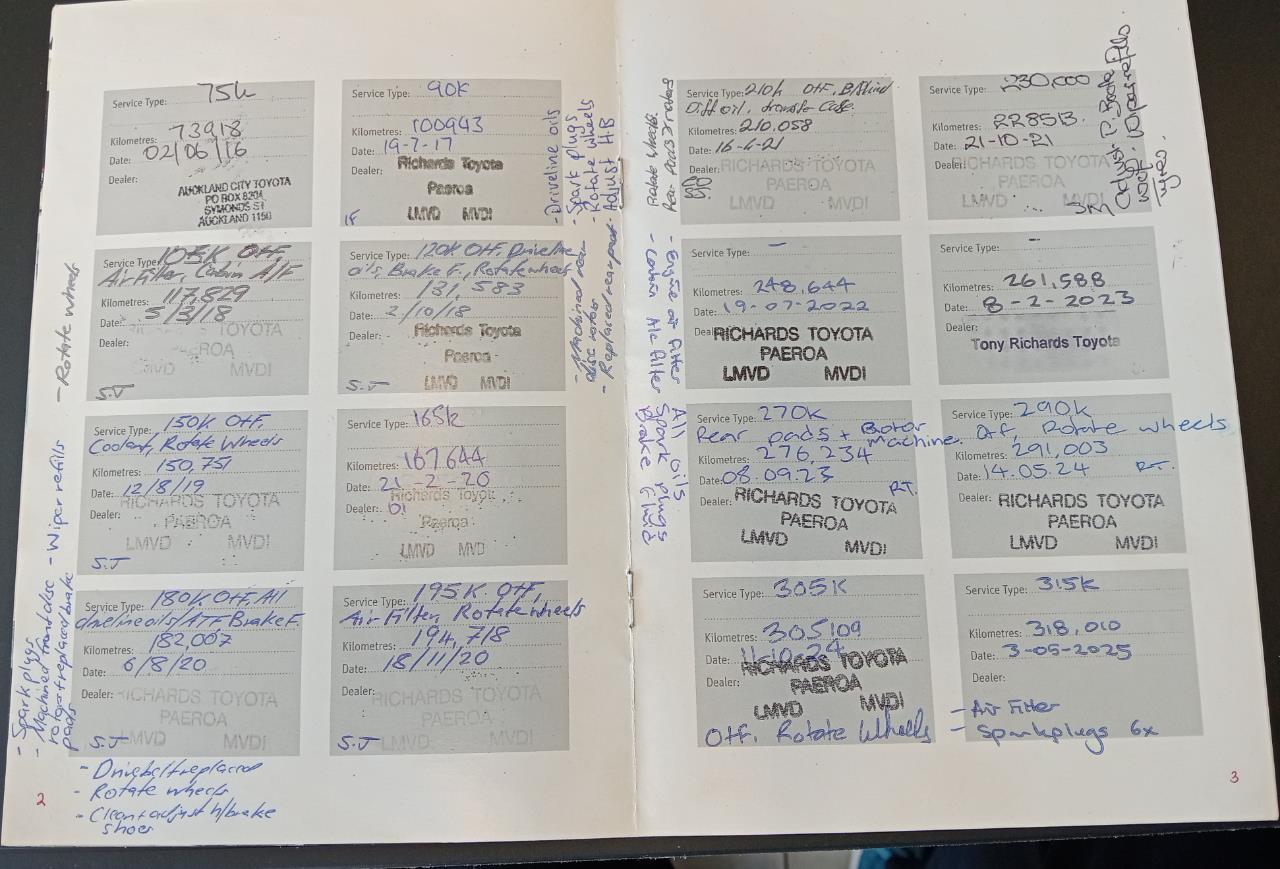 Service Type: 75k
Kilometres: 73918
Date: 02/06/16
Dealer:
AUCKLAND CITY TOYOTA
PO BOX 8204
SYMONDS ST
AUCKLAND 1150
Service Type: 90K
Kilometres: 100943
Date: 19-7-17
Dealer:
Richards Toyota
Paeroa
LMVD MVDI
- Driveline oils
- Spark plugs
- Rotate wheels
- Adjust HB
Service Type: 105K Off,
Air Filter, Cabin A/F
Kilometres: 117,829
Date: 5/3/18
Dealer:
TOYOTA
PAEROA
LMVD MVDI
S.J
- Rotate wheels
Service Type: 120K Off, Driveline
oils, Brake F., Rotate wheels
Kilometres: 131,583
Date: 2/10/18
Dealer:
Richards Toyota
Paeroa
LMVD MVDI
S.J
- Machined rear
disc rotors
- Replaced rear pads
Service Type: 150K Off,
Coolant, Rotate Wheels
Kilometres: 150,751
Date: 12/8/19
Dealer:
RICHARDS TOYOTA
PAEROA
LMVD MVDI
S.J
- Wiper refills
Service Type: 165k
Kilometres: 167644
Date: 21-2-20
Dealer:
Richards Toyota
Paeroa
LMVD MVD
Service Type: 180K Off, All
driveline oils/ATF, Brake F.
Kilometres: 182,007
Date: 6/8/20
Dealer:
RICHARDS TOYOTA
PAEROA
LMVD MVDI
S.J
- Spark plugs
- Machined front disc
rotors + replaced brake
pads
- Drive belt replaced
- Rotate wheels
- Clean + adjust h/brake
shoes
Service Type: 195K Off,
Air Filter, Rotate wheels
Kilometres: 194,718
Date: 18/11/20
Dealer:
RICHARDS TOYOTA
PAEROA
LMVD MVDI
S.J
2
Service Type: 210k Off,
Diff oil, transfer Case
Kilometres: 210,058
Date: 16-4-21
Dealer:
RICHARDS TOYOTA
PAEROA
LMVD MVDI
Rotate wheels
Rear pads
Service Type: 230,000
Kilometres: 228513.
Date: 21-10-21
Dealer:
RICHARDS TOYOTA
PAEROA
LMVD MVDI
Adjust P. Brake
Wiper refills
Service Type: -
Kilometres: 248,644
Date: 19-07-2022
Dealer:
RICHARDS TOYOTA
PAEROA
LMVD MVDI
- Engine air filter
- Cabin air filter
All oils
Spark plugs
Brake fluid
Service Type: -
Kilometres: 261,588
Date: 8-2-2023
Dealer:
Tony Richards Toyota
Service Type: 270K
Rear pads + Rotor
Machine.
Kilometres: 276,234
Date: 08.09.23
RT.
Dealer:
RICHARDS TOYOTA
PAEROA
LMVD MVDI
Service Type: 290K
Off, Rotate wheels
Kilometres: 291,003
Date: 14.05.24 RT.
Dealer:
RICHARDS TOYOTA
PAEROA
LMVD MVDI
Service Type: 305K
Kilometres: 305109
Date:
Dealer:
RICHARDS TOYOTA
PAEROA
LMVD MVDI
Off. Rotate Wheels
Service Type: 315K
Kilometres: 318,010
Date: 3-05-2025
Dealer:
- Air Filter
- Sparkplugs 6x
3